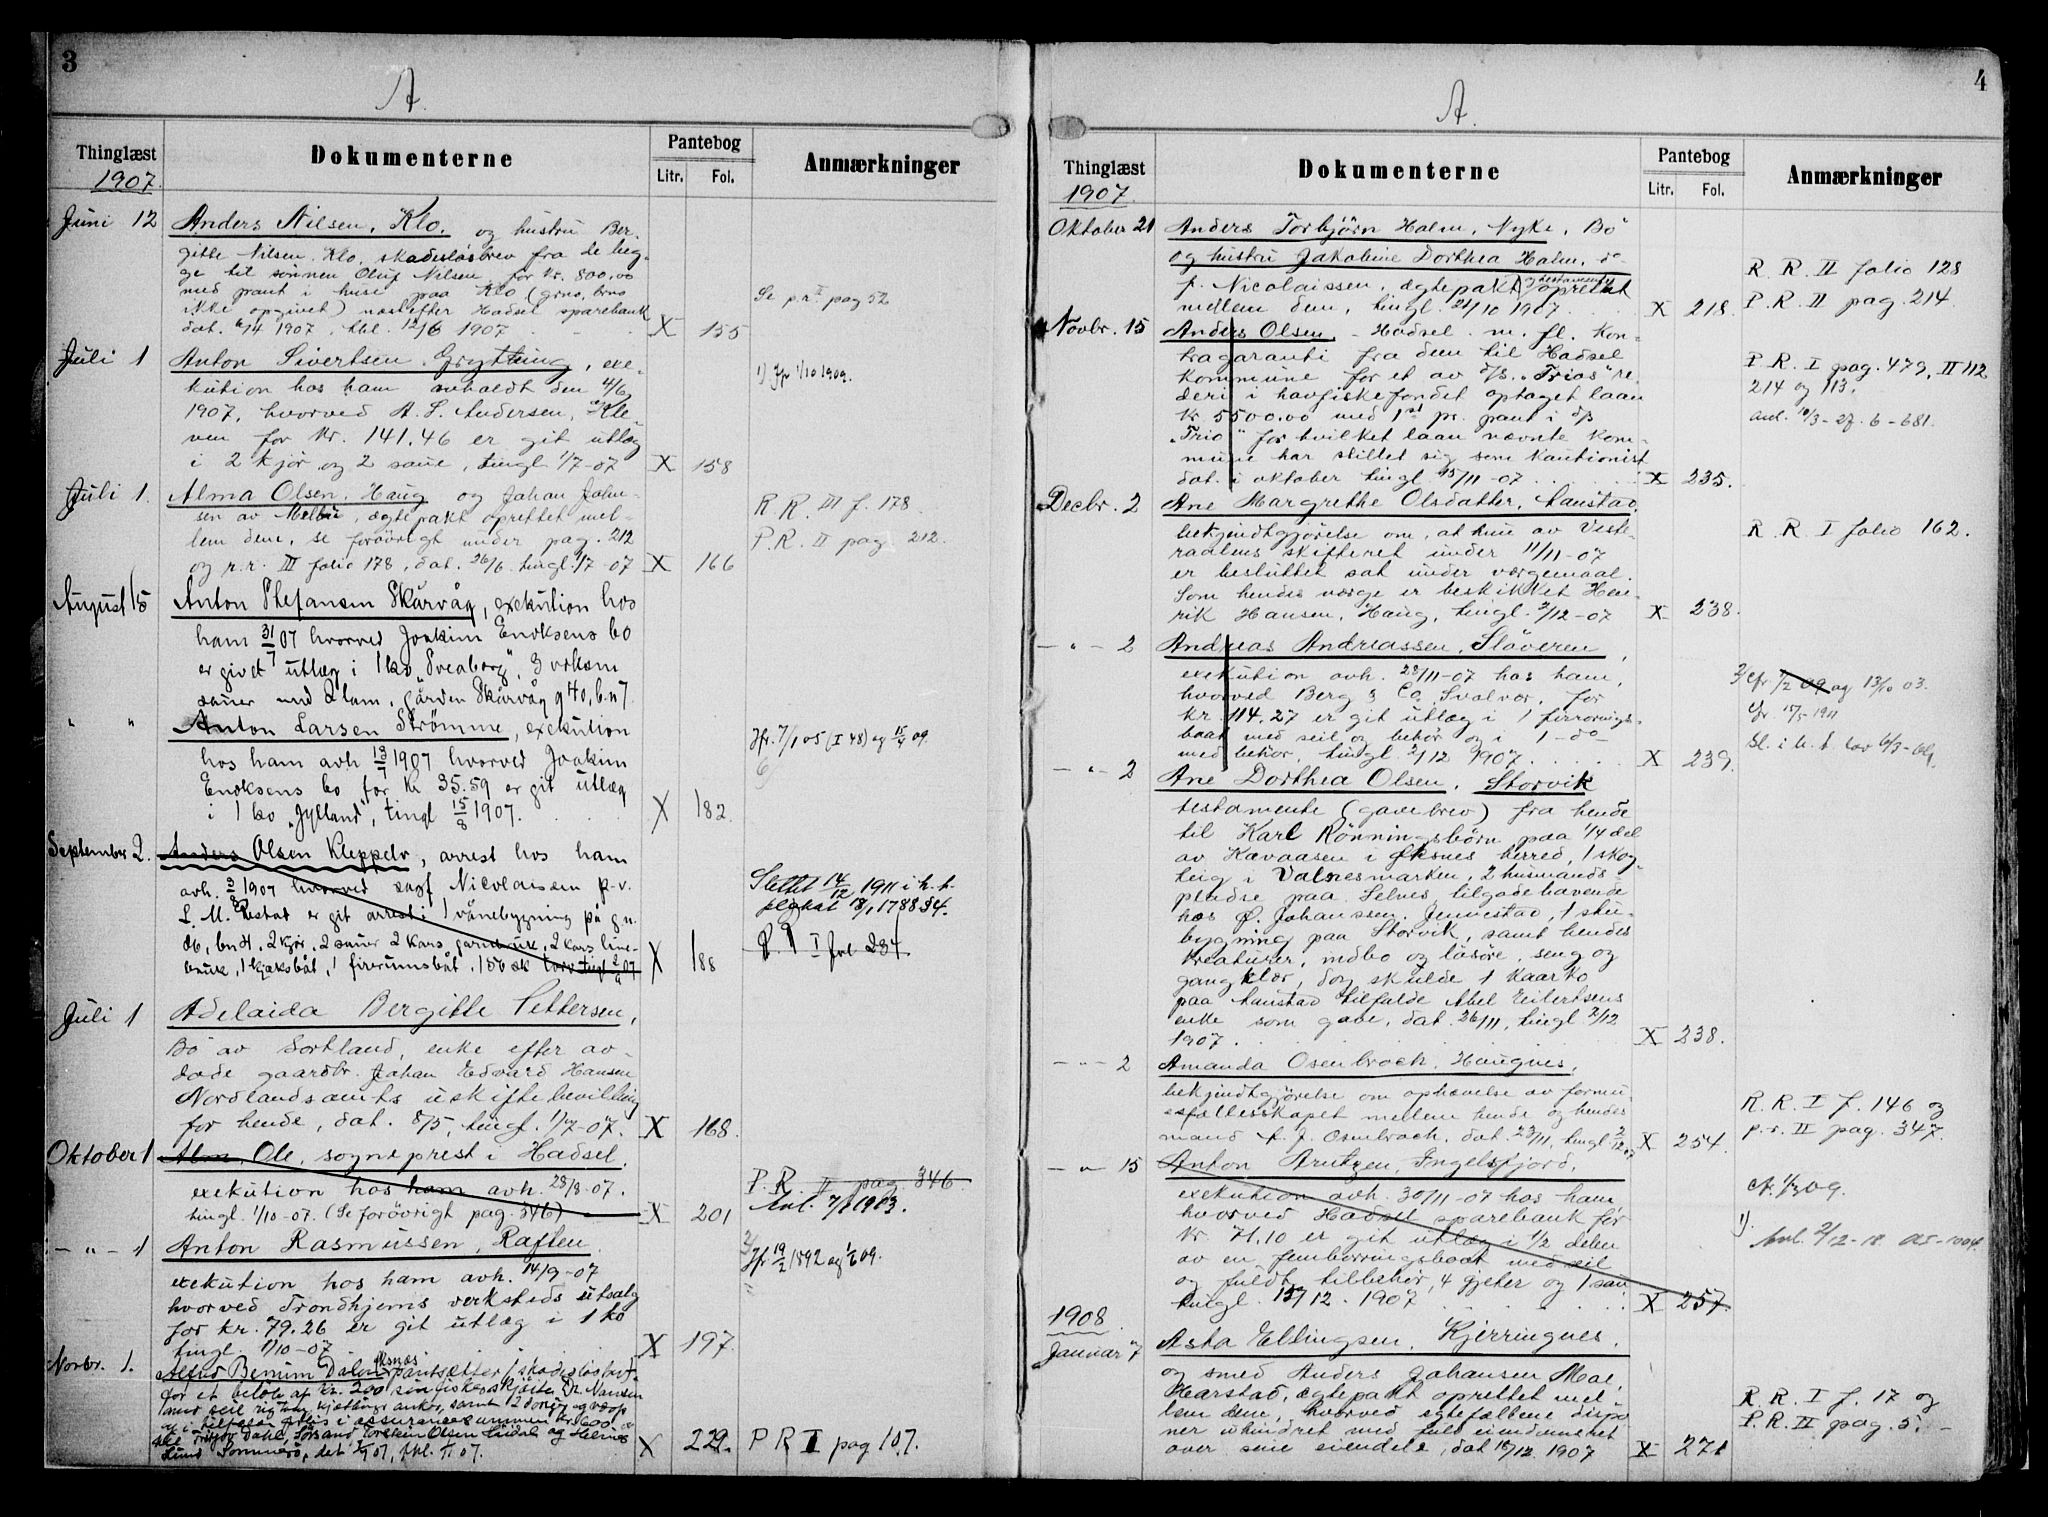 3
A.
Thinglæst
1907.
Dokumenterne
Pantebog
Litr. Fol.
Anmærkninger
Juni 12
Anders Nilsen, Klo. og hustru Ber-
gitte Nilsen, Klo, skadesløsbrev fra de beg-
ge til sønnen Oluf Nilsen for Kr. 800,00
med pant i huse paa Klo (grno, brno
ikke opgivet) næstefter Hadsel sparebank
dat. 6/4 1907, tbl. 12/6 1907
X 155
Se p.r I pag 52
Juli 1
Anton Sivertsen Grytting, exe-
kution hos ham avholdt den 4/6
1907, hvorved A. S. Andersen, Kle-
ven for Kr. 141.46 er git utlæg
i 2 kjør og 2 saue, tingl 1/7-07
X 158
1) Jfr 1/10 1909.
Juli 1.
Alma Olsen, Haug og Johan John-
sen av Melbu, ægtepakt oprettet mel-
lem dem, se forøvrigt under pag. 212
og p.r. III folio 178, dat. 26/6, tingl. 1/7-07
X 166
R R. III f. 178.
P.R. II pag 212.
August 15
Anton Stefansen Skårvåg, exekution hos
ham 31/7 07 hvorved Joakim Enoksens bo
er givet utlæg i 1 ko "Sveaborg", 3 voksne
sauer med 2 lam, gården Skårvåg g 40, b.n 7.
" "
Anton Larsen Strømme, exekution
hos ham avh 13/7 1907 hvorved Joakim
Enoksens bo for Kr 35.59 er git utlæg
i 1 ko "Jylland", tingl 15/8 1907.
X 182
Jfr. 7/1 05 (I 48) og 15/4 09.
September 2.
Anders Olsen Kleppelv, arrest hos ham
avh. 1907 hvorved sagf Nicolaisen p.v.
er git arrest i 1 vånebygning på g n.
bn 4, 2 kjør, 2 sauer 2 kars garnbruk, 2 kars line-
bruk, 1 kjeksbåt, 1 firerumsbåt,
X 188
Slettet 14/12 1911 i h. t.
plakat 18/1 1788 § 4.
P. R I fol 234
Juli 1
Adelaida Bergitte Pettersen,
Bø av Sortland, enke efter av-
døde gaardbr. Johan Edvard Hansen
Nordlandsamts uskiftebevilling
for hende, dat. 8/5, tingl. 1/7-07.
X 168
Oktober 1
Alm, Ole, sogneprest i Hadsel,
exekution hos ham avh. 28/8-07.
tingl. 1/10-07. (Se forøvrigt pag. 346)
X 201
P. R. II pag. 346
- " - 1
Anton Rasmussen, Raften
exekution hos ham avh. 14/9-07
hvorved Trondhjems verksteds utsalg
for kr. 79.26 er git utlæg i 1 ko
tingl. 1/10-07
X 197
2) Jfr 19/2 1892 og 1/6 09.
Novbr. 1.
Alfred Benum Dalen Øksnæs pantsætter (skadesløsbrev
for et beløb af kr. 200 sin fiskerskjøite Dr. Nansen
X 229.
P R I pag 107.
4
A.
Thinglæst
1907.
Dokumenterne
Pantebog
Litr. Fol.
Anmærkninger
Oktober 21
Anders Torbjørn Holm, Nyke, Bø
og hustru Jakobine Dorthea Holm, do
f. Nicolaissen, ægtepakt og testamente oprettet
mellem dem, tingl. 21/10 1907.
X 218.
R. R. II folio 128
P. R. II pag. 214.
Novbr. 15
Anders Olsen, Hadsel m. fl. Kon-
tragaranti fra dem til Hadsel
kommune for et av "Trios" re-
deri i havfiskefondet optaget laan
Kr 5500.00 med 1st pr. pant i d/s
"Trio" for hvilket laan nævnte kom-
mune har stillet sig som kautionist
dat. i oktober tingl 15/11-07
X 235.
P. R. I pag. 479, II 112
214 og 113.
Decbr. 2
Ane Margrethe Olsdatter, Aanstad,
bekjendtgjørelse om, at hun av Veste-
raalens skifteret under 11/11-07
er besluttet sat under værgemaal.
Som hendes værge er beskikket Hen-
rik Hansen, Haug, tingl. 2/12-07
X 238.
R. R. I folio 162.
- " - 2
Andreas Andreassen, Støveren,
exekution avh. 28/11-07 hos ham,
hvorved Berg & Co, Svolvær, for
kr. 114.27 er git utlæg i 1 firrorings-
baat med seil og behør og i 1 do
med behør, tingl. 2/12 1907.
X 239.
- " - 2
Ane Dorthea Olsen, Storvik
testamente (gavebrev) fra hende
til Karl Rønningsbørn paa 1/4 del
av Kavaasen i Øksnes herred, 1 skog-
teig i Valnesmarken, 2 husmands-
pladse paa Selnes tilgodehavende
hos O. Johanssen, Jennestad, 1 stu-
bygning paa Storvik, samt hendes
kreaturer, indbo og løsøre, seng og
gangklær, dog skulde 1 kaarko
paa Aanstad tilfalde Abel Eilertsens
enke som gave, dat. 26/11, tingl. 2/12
1907.
X 238.
- " - 2
Amanda Osenbroch, Haugnes,
bekjendtgjørelse om ophævelse av formu-
esfællesskapet mellem hende og hendes
mand A. J. Osenbroch, dat. 23/11, tingl 2/12
X 254.
R. R. I f. 146 og
p.r. II pag. 347.
- " - 15
Anton Arntzen, Ingelsfjord,
exekution avh. 30/11-07 hos ham
hvorved Hadsel sparebank før
Kr. 71,10 er git utlæg i 1/2 delen
av en fembørringsbaat med seil
og fuldt tilbehør, 4 gjeter og 1 sau
tingl. 15/12. 1907
X 257.
1908
Januar 7
Asta Ellingsen, Kjerringnes,
og smed Anders Johansen Moe,
Harstad, ægtepakt oprettet mel-
lem dem, hvorved egtefællene dispo-
ner uhindret med fuld eiendomsret
over sine eiendele, dat 18/12 1907
X 271
R. R. I f. 17 og
P. R. II pag. 5.